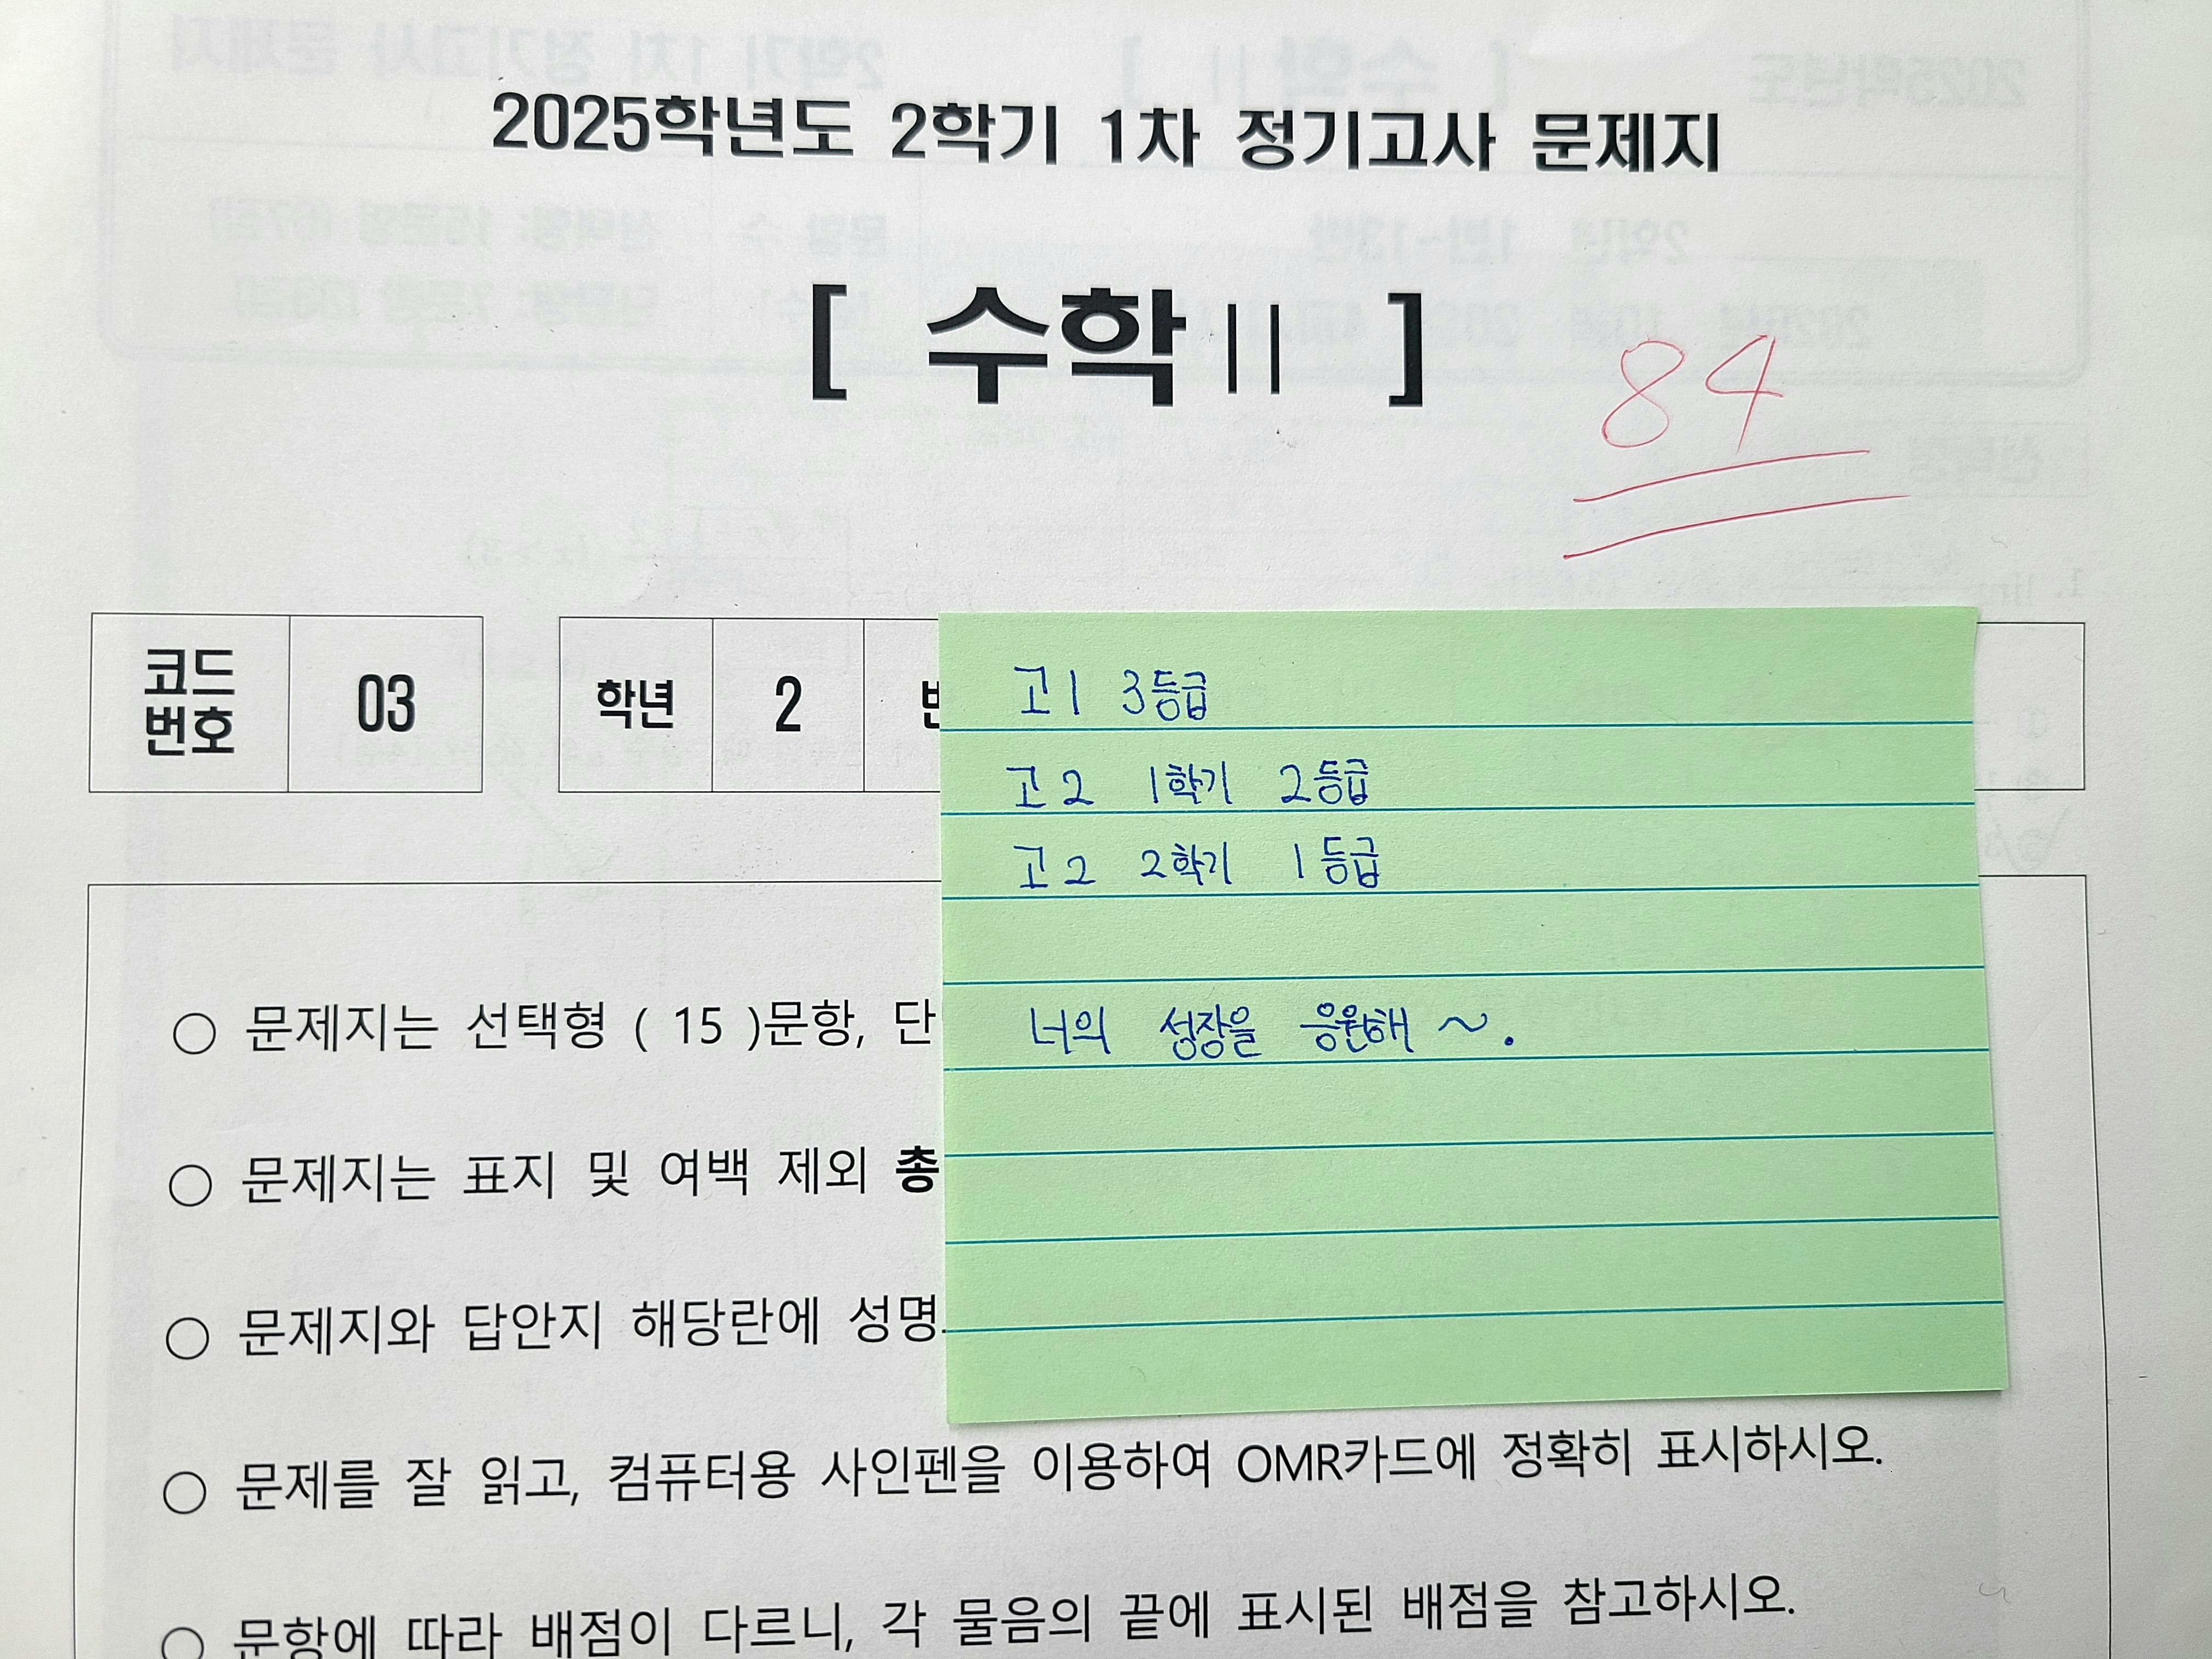 2025학년도 2학기 1차 정기고사 문제지
[ 수학II ]
84
코드
번호
03
학년
2
고1 3등급
고2 1학기 2등급
고2 2학기 1등급
너의 성장을 응원해~.
○ 문제지는 선택형 ( 15 )문항, 단
○ 문제지는 표지 및 여백 제외 총
○ 문제지와 답안지 해당란에 성명
○ 문제를 잘 읽고, 컴퓨터용 사인펜을 이용하여 OMR카드에 정확히 표시하시오.
○ 문항에 따라 배점이 다르니, 각 물음의 끝에 표시된 배점을 참고하시오.